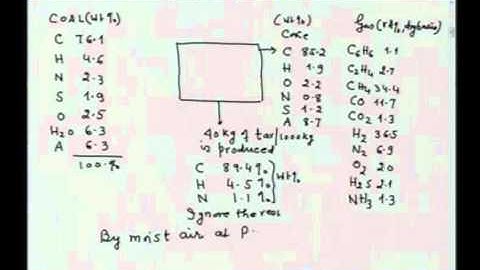 COAL (wt%)
C 76.1
H 4.6
N 2.3
S 1.9
O 2.5
H2O 6.3
A 6.3
100.%
(wt%)
Coke
C 85.2
H 1.9
O 2.2
N 0.8
S 1.2
A 8.7
Gas
C6H6 1.1
C2H4 2.7
CH4 34.4
CO 11.7
CO2 1.3
H2 36.5
N2 6.9
O2 2.0
H2S 2.1
NH3 1.3
40 kg of tar/1000kg
is produced
C 89.4%
H 4.5%
N 1.1%
wt%
Ignore the rest
By moist air at P.